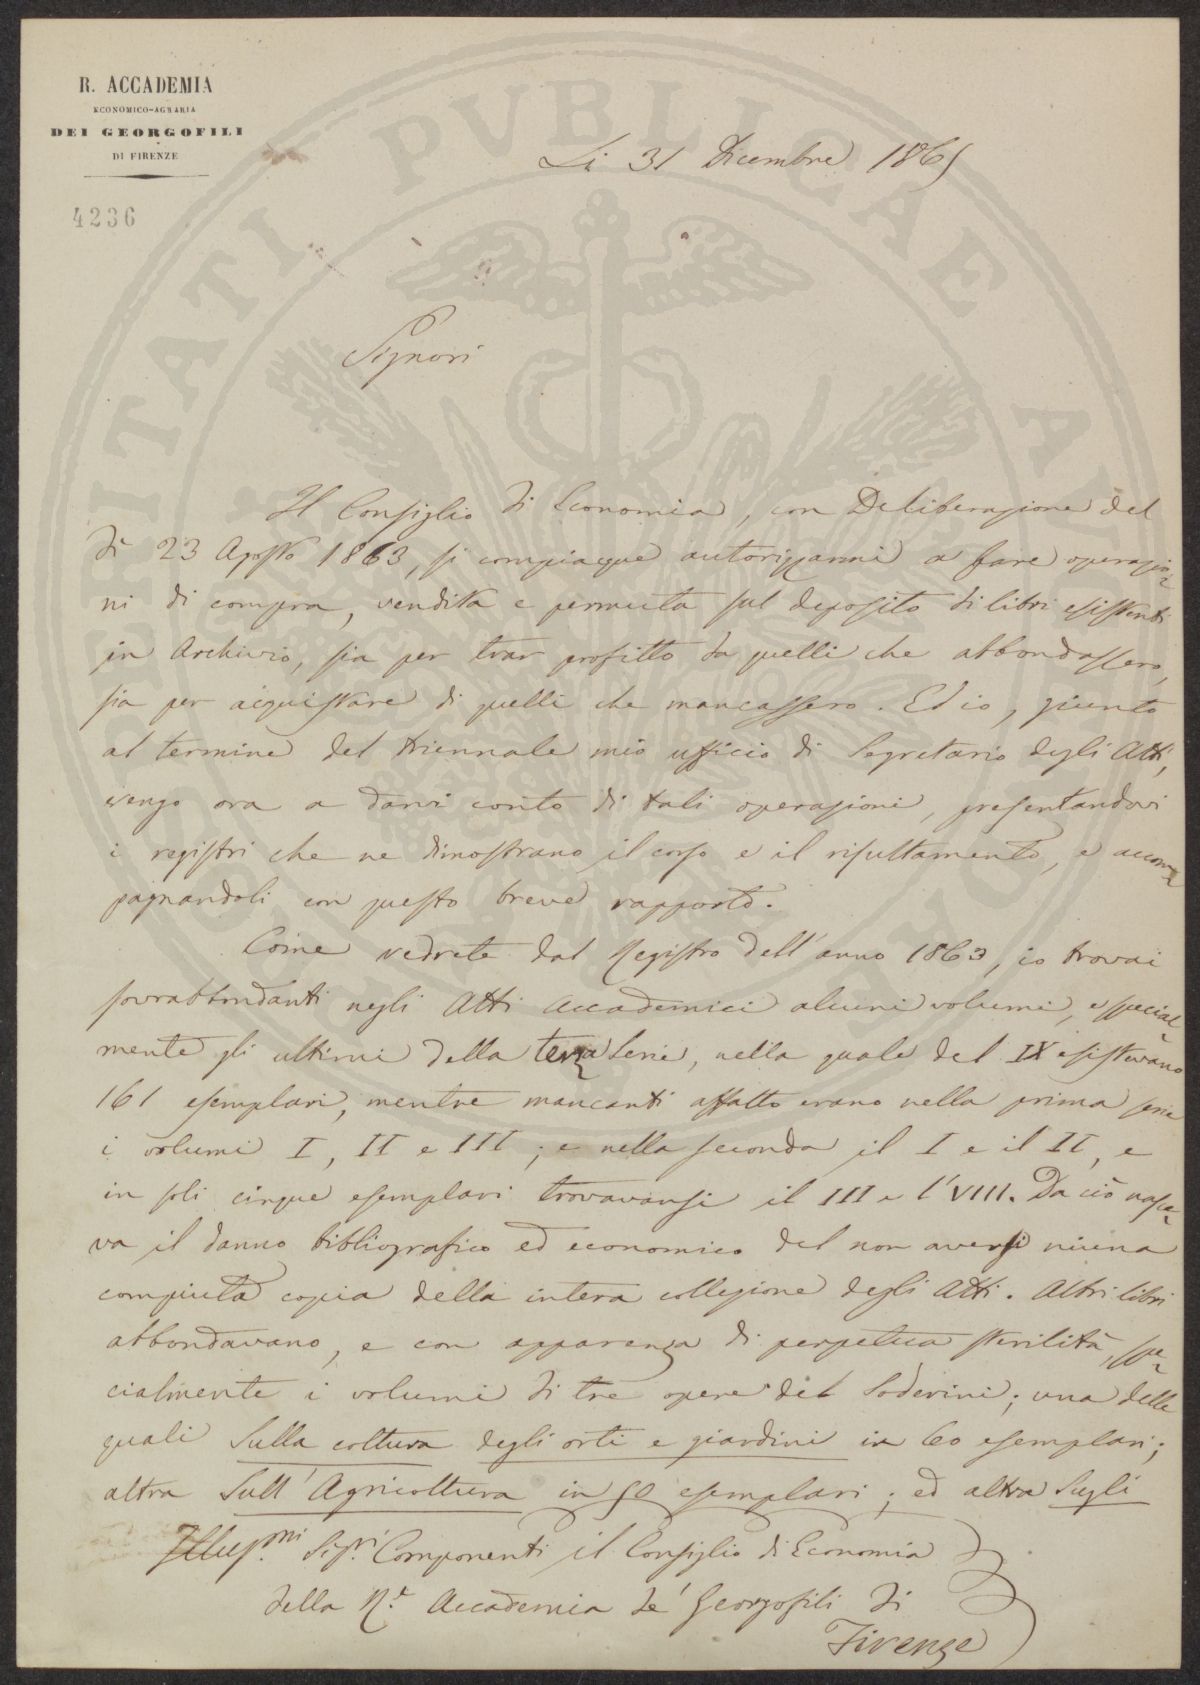 R. ACCADEMIA
ECONOMICO-AGRARIA
DEI GEORGOFILI
DI FIRENZE
Li 31 Dicembre 1865
4236
Signori
Il Consiglio di Economia, con Deliberazione del
dì 23 Agosto 1863, si compiacque autorizzarmi a fare operazio-
ni di compra, vendita e permuta sul deposito di libri esistenti
in Archivio, sia per trar profitto da quelli che abbondassero,
sia per acquistare di quelli che mancassero. Ed io, giunto
al termine del triennale mio ufficio di Segretario degli Atti,
vengo ora a darvi conto di tali operazioni, presentandovi
i registri che ne dimostrano il corso e il risultamento, e accom-
pagnandoli con questo breve rapporto.
Come vedrete dal Registro dell'anno 1863, io trovai
sovrabbondanti negli Atti Accademici alcuni volumi, e special-
mente gli ultimi della terza Serie, nella quale del IX esistevano
161 esemplari, mentre mancanti affatto erano nella prima serie
i volumi I, II e III; e nella seconda il I e il II, e
in soli cinque esemplari trovavansi il III e l'VIII. Da ciò nasce-
va il danno bibliografico ed economico del non aversi niuna
compiuta copia della intera collezione degli Atti. Altri libri
abbondavano, e con apparenza di perpetua sterilità, spe-
cialmente i volumi di tre opere del Soderini; una delle
quali Sulla coltura degli orti e giardini in 60 esemplari;
altra Sull'Agricoltura in 50 esemplari; ed altra Sugli
Illus.mi Sig.ri Componenti il Consiglio di Economia
della R.e Accademia de' Georgofili di
Firenze
PUBLICAE